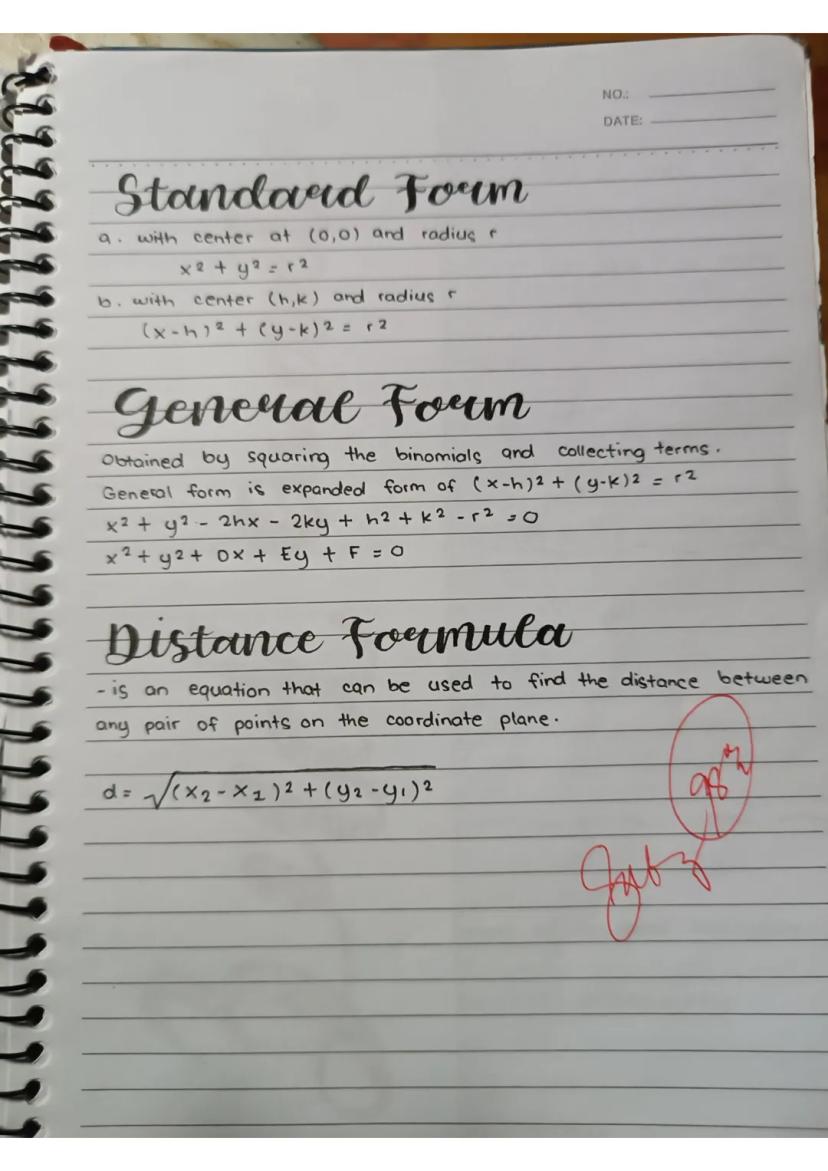 NO.:
DATE:
Standard Form
a. with center at (0,0) and radius r
x² + y² = r²
b. with center (h,k) and radius r
(x-h)² + (y-k)² = r²
General Form
Obtained by squaring the binomials and collecting terms.
General form is expanded form of (x-h)² + (y-k)² = r²
x² + y² - 2hx - 2ky + h² + k² - r² = 0
x² + y² + Dx + Ey + F = 0
Distance Formula
- is an equation that can be used to find the distance between
any pair of points on the coordinate plane.
d = √(x₂ - x₁)² + (y₂ - y₁)²
98